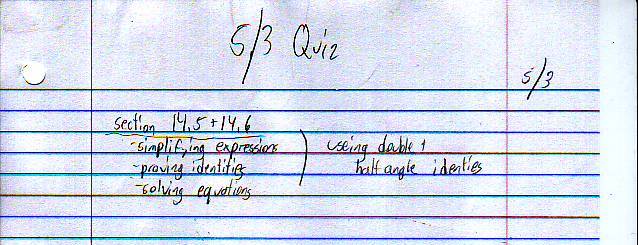 5/3 Quiz
5/3
section 14.5 + 14.6
-simplifying expressions
-proving identities
-solving equations
useing double +
half angle identies